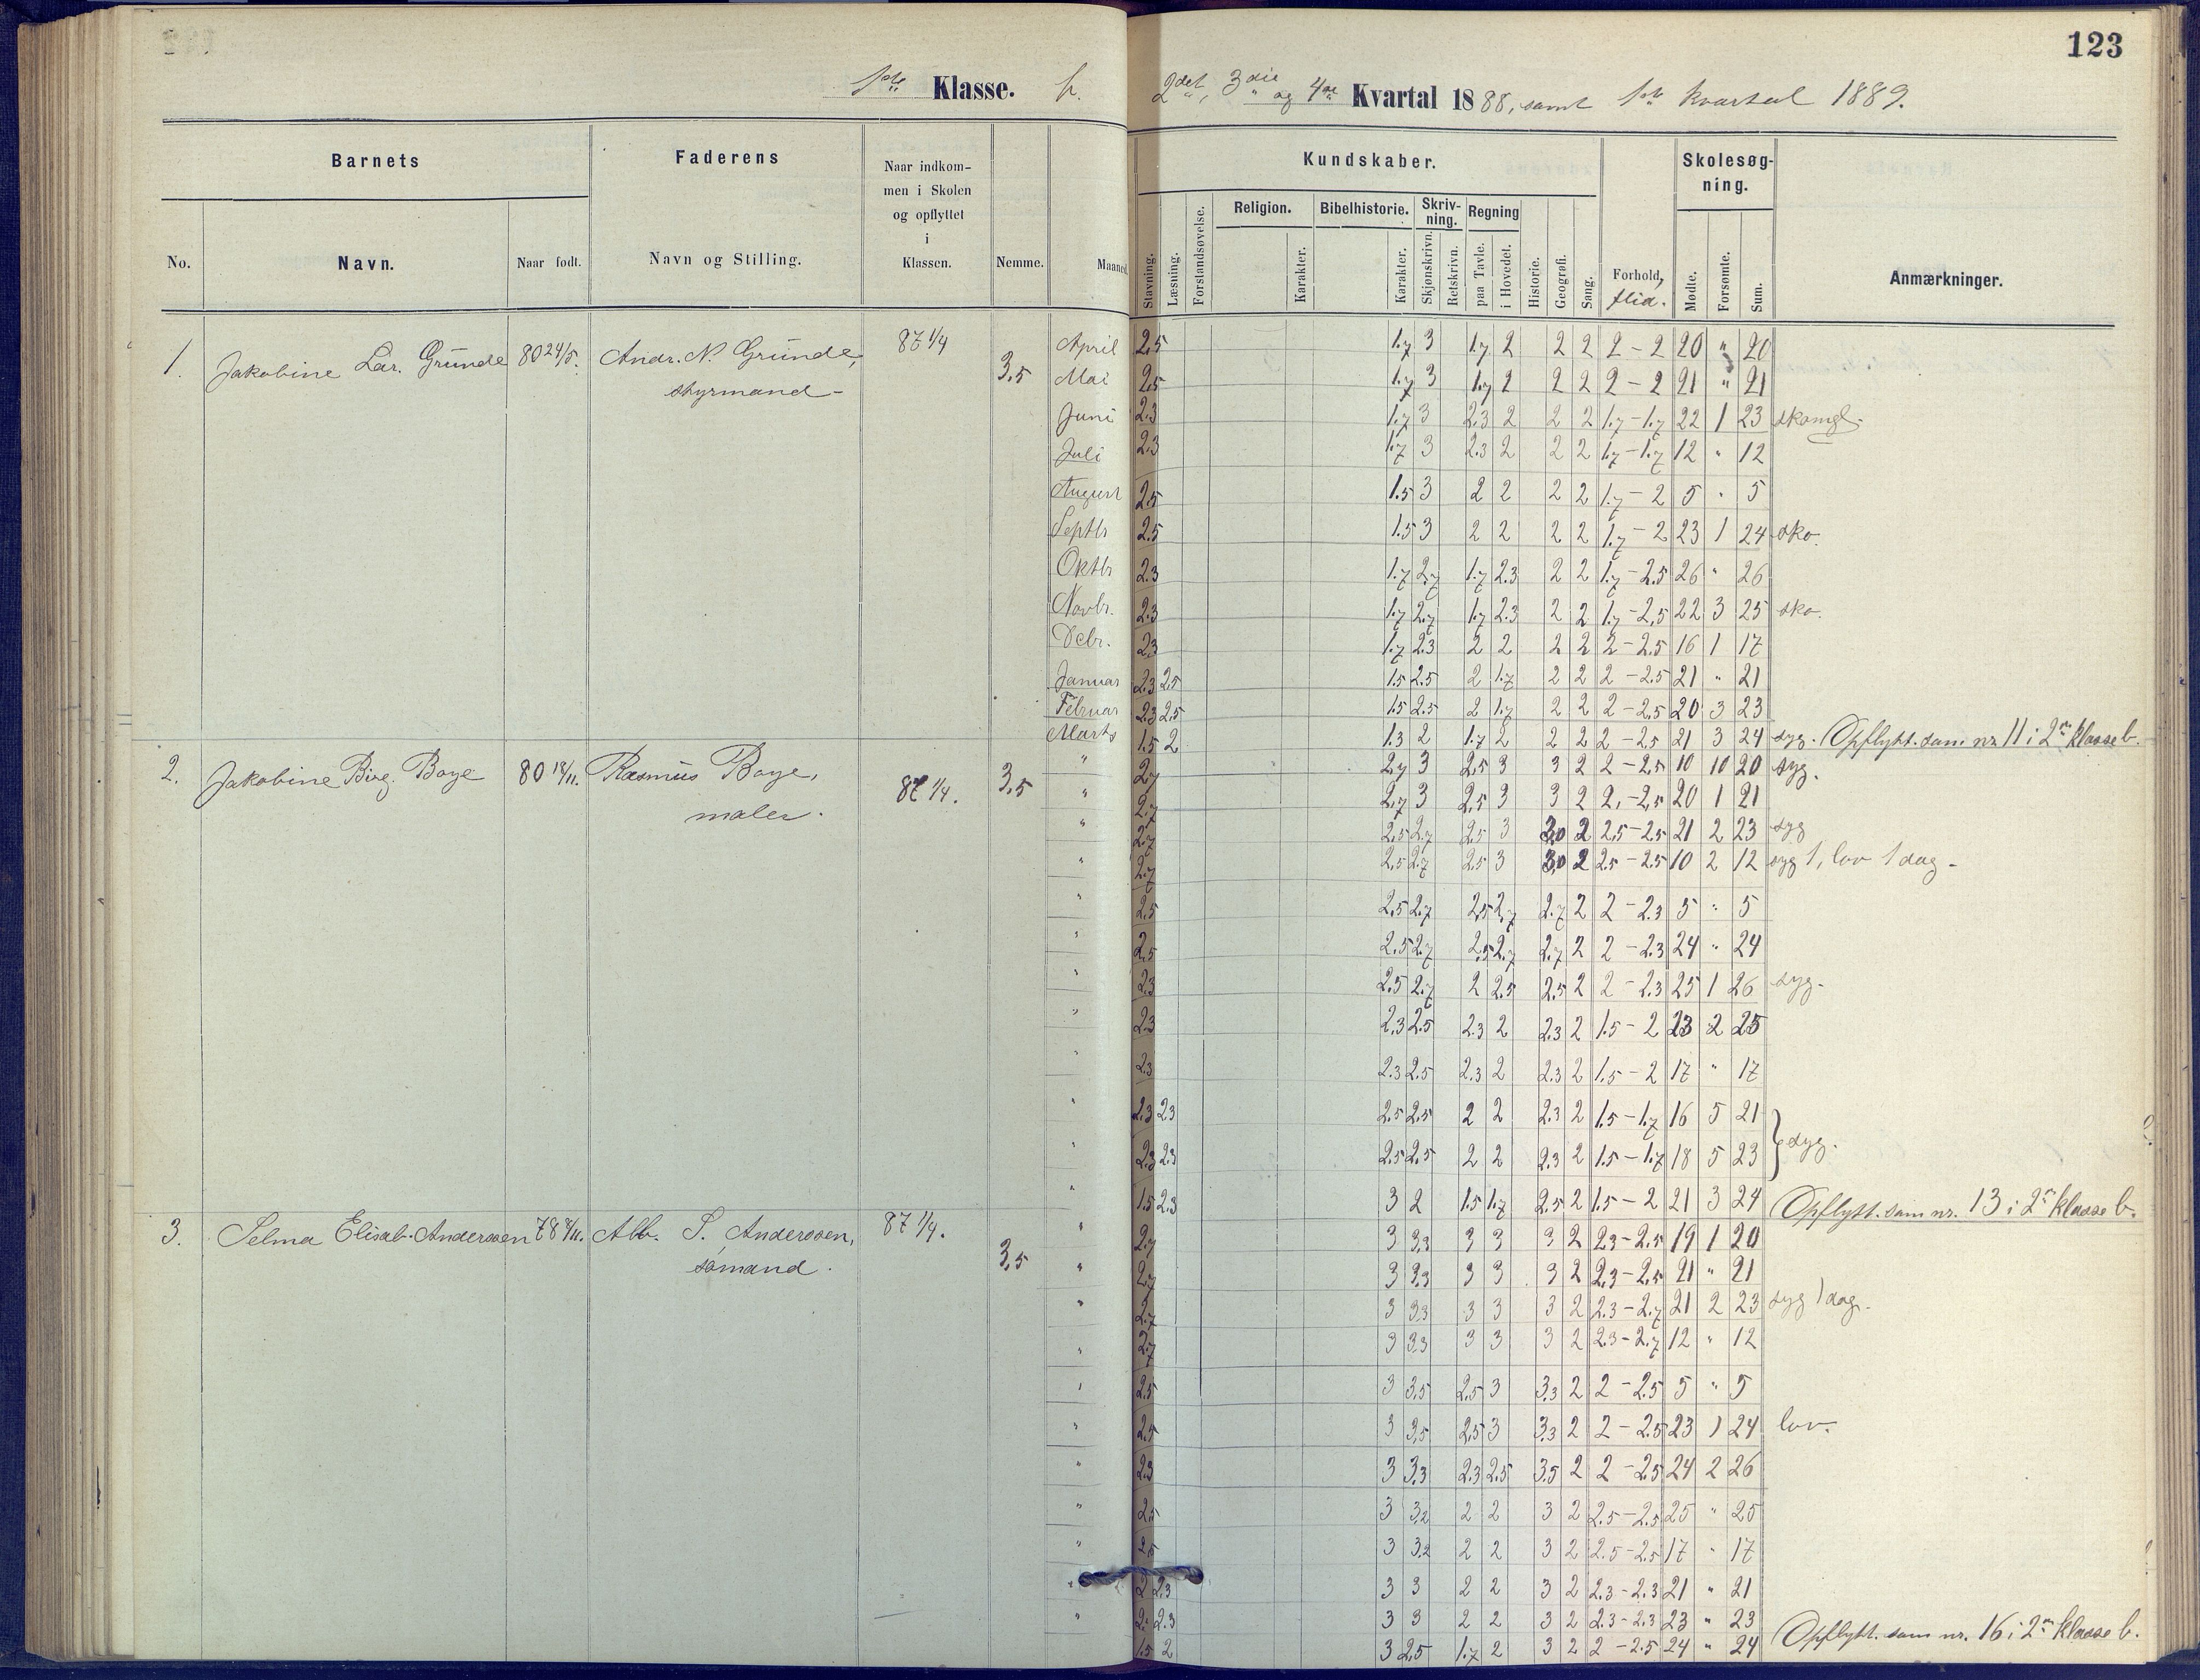 123
1ste Klasse. b.
2det, 3die og 4de Kvartal 1888, samt 1ste kvartal 1889.
Barnets Faderens Naar indkommen i Skolen og opflyttet i Klassen. Nemme. Maaned.
No. Navn. Naar født. Navn og Stilling.
Kundskaber. Forhold, flid. Skolesøgning. Anmærkninger.
Stavning. Læsning. Forstandsøvelse. Religion. Karakter. Bibelhistorie. Karakter. Skrivning. Skjønskrivn. Retskrivn. Regning paa Tavle. i Hovedet. Historie. Geografi. Sang. Mødte. Forsømte. Sum.
1. Jakobine Lar. Grunde 80 24/5. Andr. N. Grunde, styrmand 87 1/4 3,5
April 2,5 1.7 3 1.7 2 2 2 2 – 2 20 " 20
Mai 2,5 1.7 3 1.7 2 2 2 2 – 2 21 " 21
Juni 2.3 1.7 3 2.3 2 2 2 1.7 – 1.7 22 1 23 skomgl.
Juli 2.3 1.7 3 2.3 2 2 2 1.7 – 1.7 12 " 12
August 2.5 1.5 3 2 2 2 2 1.7 – 2 5 " 5
Septbr 2.5 1.5 3 2 2 2 2 1.7 – 2 23 1 24 sko.
Oktbr 2.3 1.7 2.7 1.7 2.3 2 2 1.7 – 2.5 26 " 26
Novbr. 2.3 1.7 2.7 1.7 2.3 2 2 1.7 – 2,5 22 3 25 sko.
Debr. 2.3 1.7 2.3 2 2 2 2 2 – 2.5 16 1 17
Januar 2.3 2.5 1.5 2.5 2 1.7 2 2 2 – 2.5 21 " 21
Februar 2.3 2.5 1.5 2.5 2 1.7 2 2 2 – 2,5 20 3 23
Marts 1.5 2 1.3 2 1.7 2 2 2 2 – 2.5 21 3 24 syg. Opflytt. som nr 11 i 2n klasse b.
2. Jakobine Birg. Boye 80 18/11. Rasmus Boye, maler. 87 1/4. 3,5
" 2.7 2.7 3 2.5 3 3 2 2 – 2.5 10 10 20 syg.
" 2.7 2,7 3 2,5 3 3 2 2, – 2,5 20 1 21
" 2.7 2,5 2.7 2.5 3 3,0 2 2,5 – 2.5 21 2 23 syg
" 2.7 2,5 2.7 2.5 3 3,0 2 2.5 – 2.5 10 2 12 syg 1, lov 1 dag –
" 2,5 2,5 2.7 2,5 2,7 2.7 2 2 – 2.3 5 " 5
" 2,5 2.5 2.7 2.5 2.7 2.7 2 2 – 2.3 24 " 24
" 2.3 2.5 2.7 2 2.5 2,5 2 2 – 2.3 25 1 26 syg.
" 2.3 2,3 2.5 2.3 2 2.3 2 1.5 – 2 23 2 25
" 2.3 2.3 2.5 2.3 2 2.3 2 1.5 – 2 17 " 17
" 2.3 2.3 2.5 2.5 2 2 2.3 2 1.5 – 1.7 16 5 21
" 2.3 2.3 2.5 2.5 2 2 2.3 2 1.5 – 1.7 18 5 23 } syg.
" 1.5 2.3 3 2 1.5 1.7 2.5 2 1.5 – 2 21 3 24 Opflytt. som nr. 13 i 2n klasse b.
3. Selma Elisab. Anderssen 78 8/11. Alb. S. Anderssen, sømand. 87 1/4. 3,5
" 2.7 3 3,3 3 3 3 2 2.3 – 2.5 19 1 20
" 2.7 3 3.3 3 3 3 2 2.3 – 2,5 21 " 21
" 2.7 3 3.3 3 3 3 2 2.3 – 2.7 21 2 23 syg 1 dag.
" 2.7 3 3.3 3 3 3 2 2.3 – 2.7 12 " 12
" 2.5 3 3,5 2.5 3 3,3 2 2 – 2.5 5 " 5
" 2.5 3 3,5 2,5 3 3.3 2 2 – 2.5 23 1 24 lov.
" 2.3 3 3,3 2.3 2.5 3.5 2 2 – 2.5 24 2 26
" 2.5 3 3,2 2 2 3 2 2.5 – 2.5 25 " 25
" 2.5 3 3.2 2 2 3 2 2.5 – 2.5 17 " 17
" 2 2.3 3 3 2 2 3 2 2.3 – 2.3 21 " 21
" 2. 2.3 3 3 2 2 3 2 2.3 – 2.3 23 " 23
1.5 2 3 2.5 1.7 2 3 2 2 – 2.5 24 " 24 Opflytt. som nr. 16 i 2n klasse b.